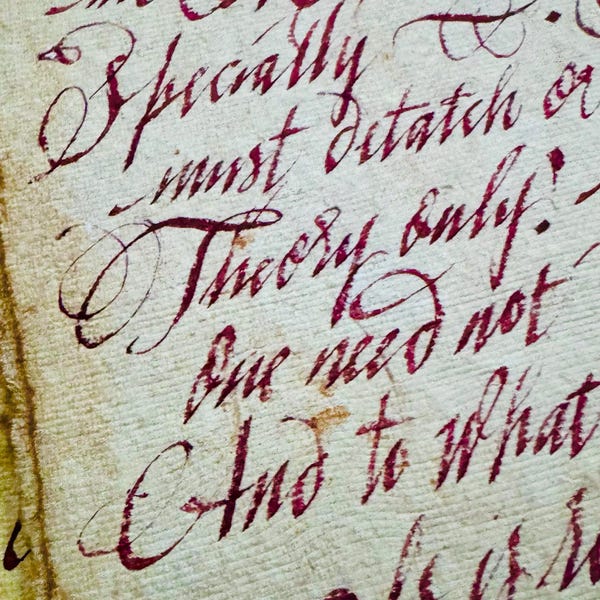 Specially
must detatch or
Theory only!
one need not
And to what